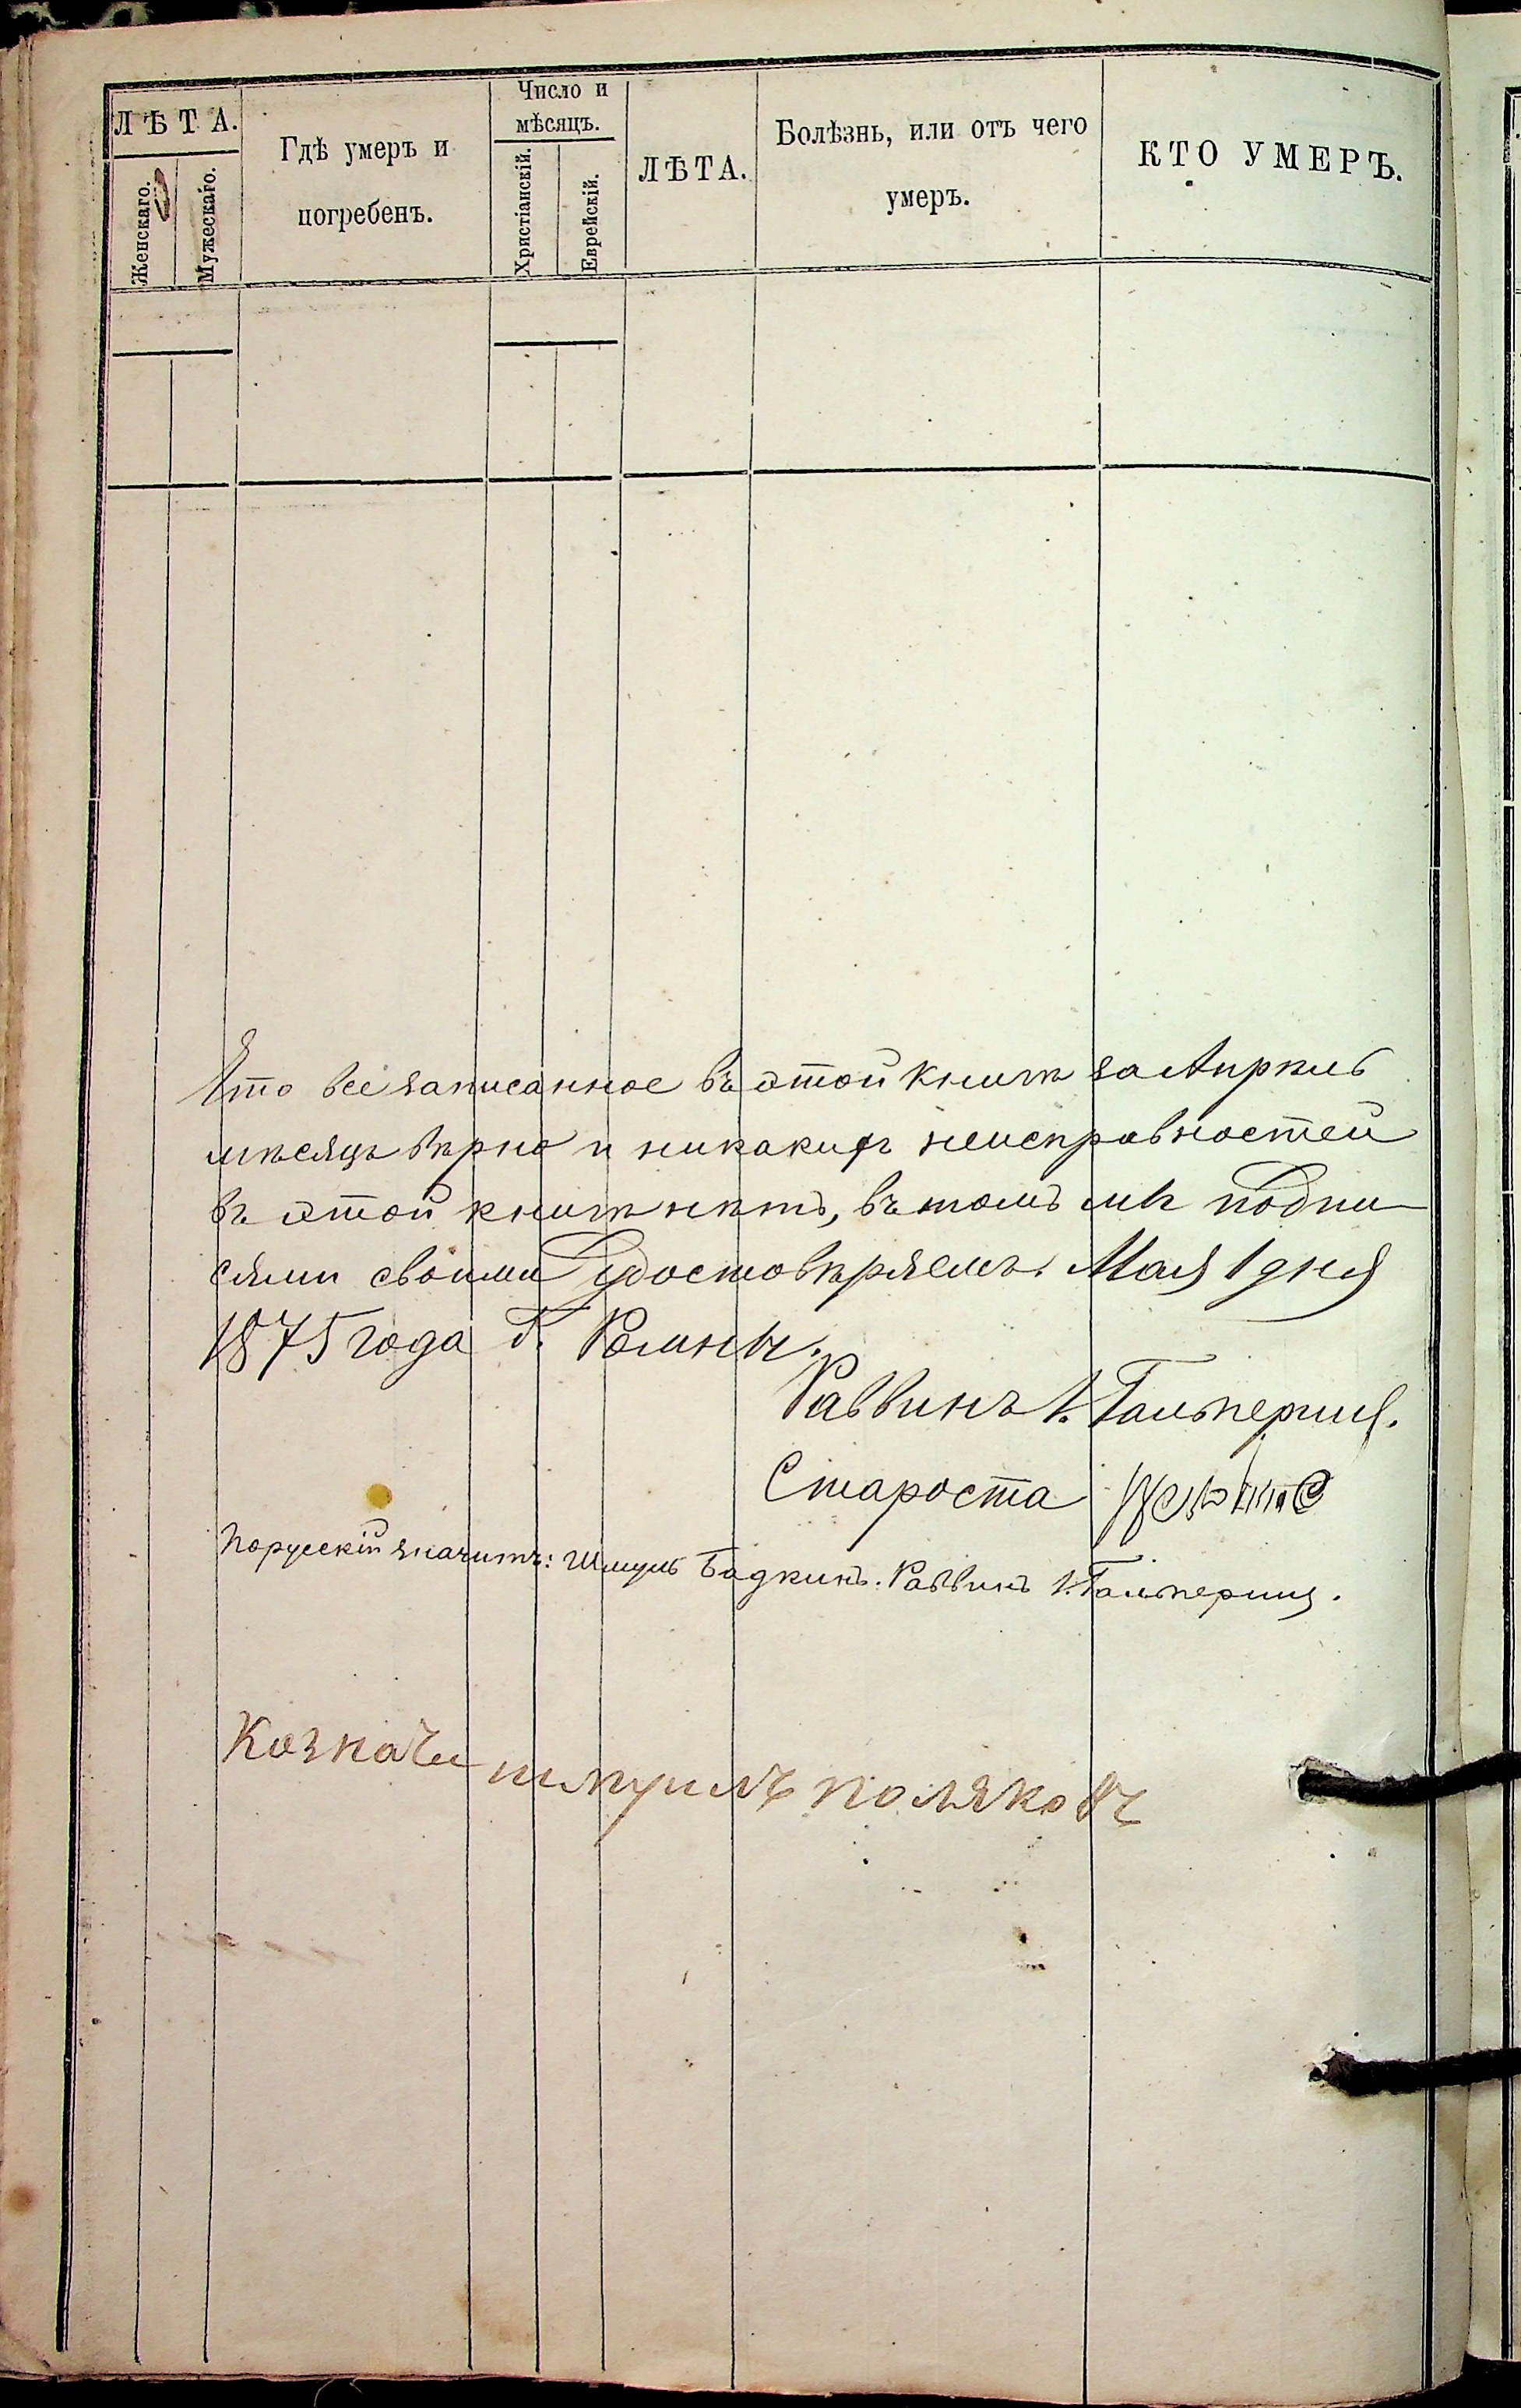 ЛѢТА.
Женскаго.
Мужескаго.
Гдѣ умеръ и
погребенъ.
Число и
мѣсяцъ.
Христіанскій.
Еврейскій.
ЛѢТА.
Болѣзнь, или отъ чего
умеръ.
КТО УМЕРЪ.
Что все записанное въ этой книгѣ за Апрѣль
мѣсяцъ вѣрно и никакихъ неисправностей
въ этой книгѣ нѣтъ, въ томъ мы подпи-
сями своими удостовѣряемъ. Мая 1 дня
1875 года г. Ромны.
Раввинъ І. Гальперинъ.
Староста
Порусскій значитъ: Шмуль Бадкинъ. Раввинъ І. Гальперинъ.
Козначи шмуилъ поляковъ